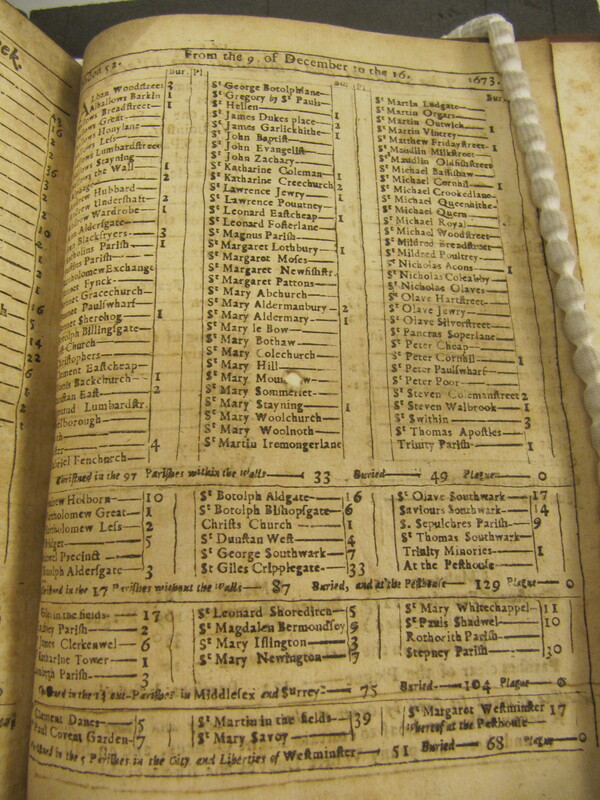 From the 9. of December to the 16. 1673.
Bur. Pl
Woodstreet 3
Alhallows Barkin 1
Breadstreet 1
Great
Honylane
Less
Lumbardstreet
Stayning
the Wall 1
Hubbard
Undershaft 2
Wardrobe 1
Aldersgate
Blackfryers 3
Parish 1
Parish
Exchange
Fynck
Gracechurch
Paulswharf
Sherehog 1
Billingsgate
Church
Eastcheap
Backchurch 1
East 2
Lumbardstr.
4
Fenchurch
Bur. Pl
St George Botolphlane
St Gregory by St Pauls
St Hellen
St James Dukes place 1
St James Garlickhithe 1
St John Baptist
St John Evangelist
St John Zachary
St Katharine Coleman 1
St Katharine Creechurch 2
St Lawrence Jewry 1
St Lawrence Pountney
St Leonard Eastcheap 1
St Leonard Fosterlane
St Magnus Parish
St Margaret Lothbury 1
St Margaret Moses
St Margaret Newfishstr.
St Margaret Pattons
St Mary Abchurch
St Mary Aldermanbury 2
St Mary Aldermary 1
St Mary le Bow
St Mary Bothaw
St Mary Colechurch
St Mary Hill
St Mary
St Mary Sommerset
St Mary Stayning 1
St Mary Woolchurch
St Mary Woolnoth
St Martin Iremongerlane
Bur.
St Martin Ludgate
St Martin Orgars
St Martin Outwich 1
St Martin Vintrey
St Matthew Fridaystreet 1
St Maudlin Milkstreet
St Maudlin Oldfishstreet
St Michael Bassishaw
St Michael Cornhil 1
St Michael Crookedlane
St Michael Queenhithe
St Michael Quern
St Michael Royal
St Michael Woodstreet
St Mildred Breadstreet
St Mildred Poultrey
St Nicholas Acons 1
St Nicholas Coleabby
St Nicholas Olaves
St Olave Hartstreet
St Olave Jewry
St Olave Silverstreet
St Pancras Soperlane
St Peter Cheap
St Peter Cornhil 1
St Peter Paulswharf
St Peter Poor
St Steven Colemanstreet 2
St Steven Walbrook 1
St Swithin 3
St Thomas Apostles
Trinity Parish 1
Christned in the 97 Parishes within the Walls 33 Buried 49 Plague 0
Holborn 10
Great 1
Less 2
5
Precinct
Aldersgate 3
St Botolph Aldgate 16
St Botolph Bishopsgate 6
Christs Church 1
St Dunstan West 4
St George Southwark 7
St Giles Cripplegate 33
St Olave Southwark 17
Saviours Southwark 14
S. Sepulchres Parish 9
St Thomas Southwark
Trinity Minories 1
At the Pesthouse
in the 17 Parishes without the Walls 87 Buried, and at the Pesthouse 129 Plague 0
in the fields 17
Parish 2
James Clerkenwel 6
Katharine Tower 1
Parish 3
St Leonard Shoreditch 5
St Magdalen Bermondsey 9
St Mary Islington 3
St Mary Newington 7
St Mary Whitechappel 11
St Pauls Shadwel 10
Rothorith Parish
Stepney Parish 30
in the 14 out-Parishes in Middlesex and Surrey: 75 Buried 104 Plague 0
Clement Danes 5
Paul Covent Garden 7
St Martin in the fields 39
St Mary Savoy
St Margaret Westminster 17
Whereof at the Pesthouse
in the 5 Parishes in the City and Liberties of Westminster 51 Buried 68 Plague 0